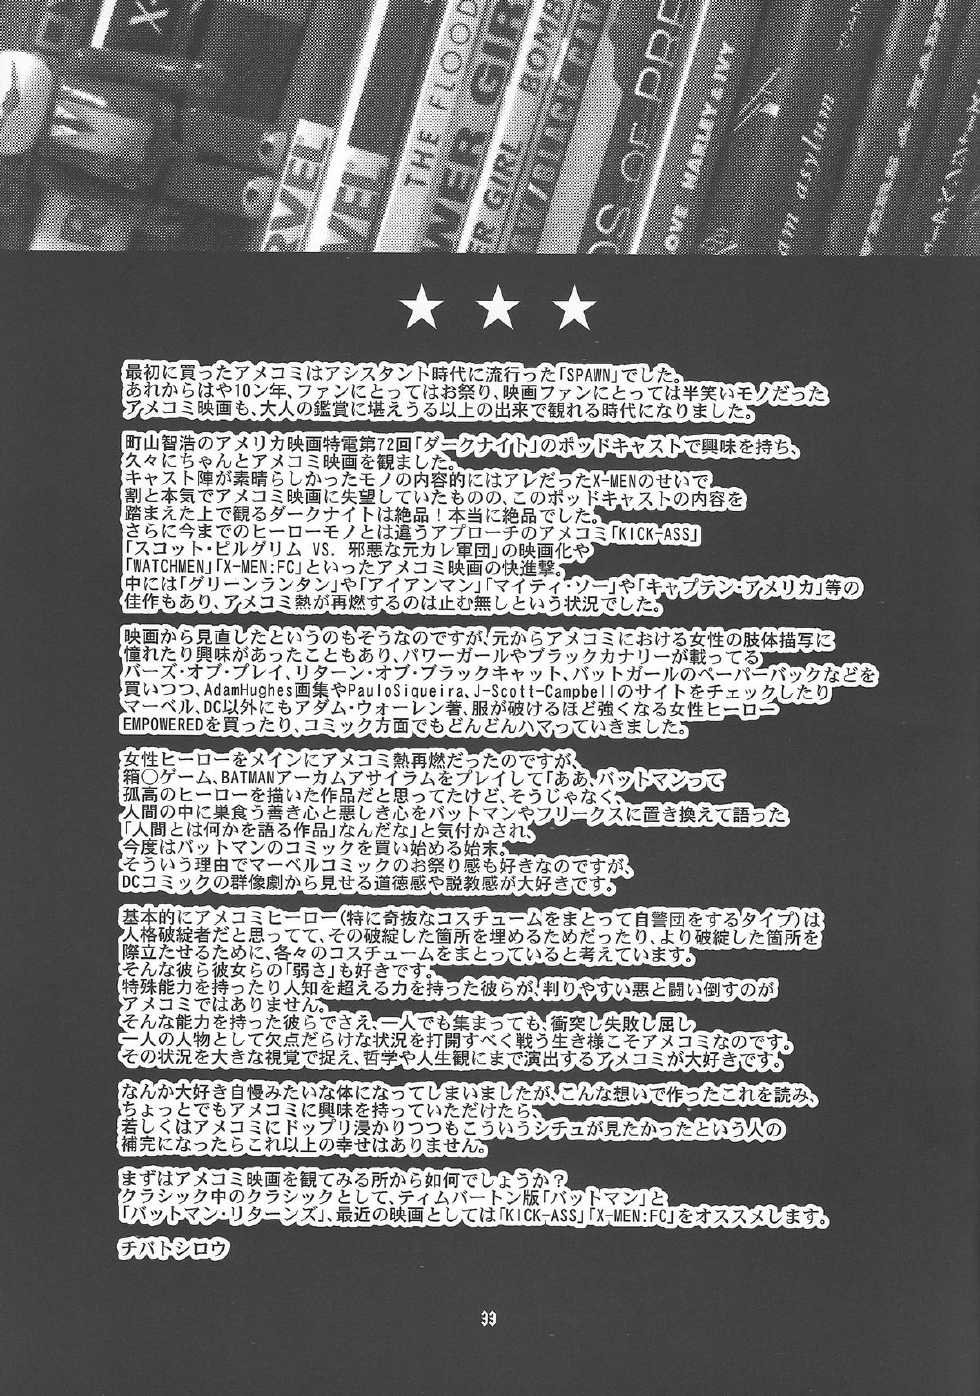 X-
THE FLOOD
WER GIR
ER GIRL BOMB
/BLACK CAN
OS OF PRE
OVE MARLEY & IVY
am asylum
RVEL
VEL
最初に買ったアメコミはアシスタント時代に流行った「SPAWN」でした。
あれからはや10ン年、ファンにとってはお祭り、映画ファンにとっては半笑いモノだった
アメコミ映画も、大人の鑑賞に堪えうる以上の出来で観れる時代になりました。
町山智浩のアメリカ映画特電第72回「ダークナイト」のポッドキャストで興味を持ち、
久々にちゃんとアメコミ映画を観ました。
キャスト陣が素晴らしかったモノの内容的にはアレだったX-MENのせいで
割と本気でアメコミ映画に失望していたものの、このポッドキャストの内容を
踏まえた上で観るダークナイトは絶品！本当に絶品でした。
さらに今までのヒーローモノとは違うアプローチのアメコミ「KICK-ASS」
「スコット・ピルグリム VS. 邪悪な元カレ軍団」の映画化や
「WATCHMEN」「X-MEN:FC」といったアメコミ映画の快進撃。
中には「グリーンランタン」や「アイアンマン」「マイティ・ソー」や「キャプテン・アメリカ」等の
佳作もあり、アメコミ熱が再燃するのは止む無しという状況でした。
映画から見直したというのもそうなのですが、元からアメコミにおける女性の肢体描写に
憧れたり興味があったこともあり、パワーガールやブラックカナリーが載ってる
バーズ・オブ・プレイ、リターン・オブ・ブラックキャット、バットガールのペーパーバックなどを
買いつつ、AdamHughes画集やPauloSiqueira、J-Scott-Campbellのサイトをチェックしたり
マーベル、DC以外にもアダム・ウォーレン著、服が破けるほど強くなる女性ヒーロー
EMPOWEREDを買ったり、コミック方面でもどんどんハマっていきました。
女性ヒーローをメインにアメコミ熱再燃だったのですが、
箱〇ゲーム、BATMANアーカムアサイラムをプレイして「ああ、バットマンって
孤高のヒーローを描いた作品だと思ってたけど、そうじゃなく、
人間の中に巣食う善き心と悪しき心をバットマンやフリークスに置き換えて語った
「人間とは何かを語る作品」なんだな」と気付かされ、
今度はバットマンのコミックを買い始める始末。
そういう理由でマーベルコミックのお祭り感も好きなのですが、
DCコミックの群像劇から見せる道徳感や説教感が大好きです。
基本的にアメコミヒーロー(特に奇抜なコスチュームをまとって自警団をするタイプ)は
人格破綻者だと思ってて、その破綻した箇所を埋めるためだったり、より破綻した箇所を
際立たせるために、各々のコスチュームをまとっていると考えています。
そんな彼ら彼女らの「弱さ」も好きです。
特殊能力を持ったり人知を超える力を持った彼らが、判りやすい悪と闘い倒すのが
アメコミではありません。
そんな能力を持った彼らでさえ、一人でも集まっても、衝突し失敗し屈し
一人の人物として欠点だらけな状況を打開すべく戦う生き様こそアメコミなのです。
その状況を大きな視覚で捉え、哲学や人生観にまで演出するアメコミが大好きです。
なんか大好き自慢みたいな体になってしまいましたが、こんな想いで作ったこれを読み、
ちょっとでもアメコミに興味を持っていただけたら、
若しくはアメコミにドップリ浸かりつつもこういうシチュが見たかったという人の
補完になったらこれ以上の幸せはありません。
まずはアメコミ映画を観てみる所から如何でしょうか？
クラシック中のクラシックとして、ティムバートン版「バットマン」と
「バットマン・リターンズ」、最近の映画としては「KICK-ASS」「X-MEN:FC」をオススメします。
チバトシロウ
33